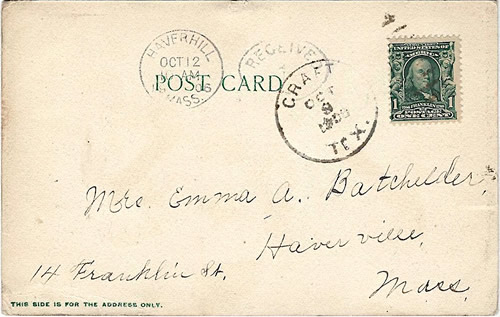 HAVERHILL
OCT 12
AM
MASS.
RECEIVED
POST CARD
CRAFT
OCT
TEX.
UNITED STATES OF AMERICA
FRANKLIN
1 POSTAGE 1
ONE CENT
Mrs. Emma A. Batchelder,
Haverville,
14 Franklin St.
Mass,
THIS SIDE IS FOR THE ADDRESS ONLY.